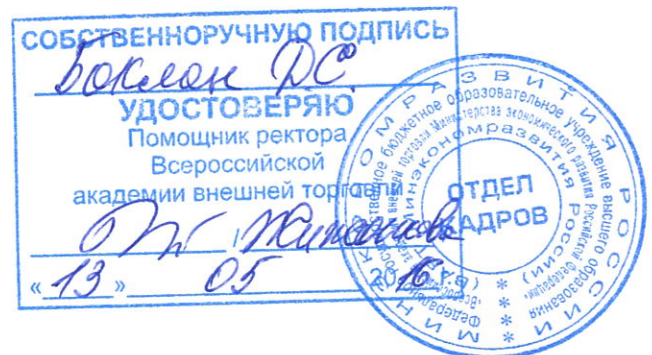 СОБСТВЕННОРУЧНУЮ ПОДПИСЬ
Боклан Д.С.
УДОСТОВЕРЯЮ
Помощник ректора
Всероссийской
академии внешней торговли
/
« 13 » 05 2016 г.
МИНЭКОНОМРАЗВИТИЯ РОССИИ
Федеральное государственное бюджетное образовательное учреждение высшего образования
«Всероссийская академия внешней торговли Министерства экономического развития Российской Федерации»
Минэкономразвития России)
ОТДЕЛ
КАДРОВ
* * * *